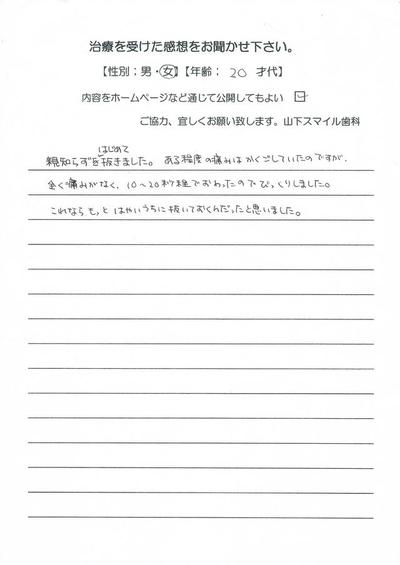 治療を受けた感想をお聞かせ下さい。
【性別：男・女】【年齢： 20 才代】
内容をホームページなど通じて公開してもよい ☑
ご協力、宜しくお願い致します。山下スマイル歯科
はじめて
親知らずを抜きました。ある程度の痛みはかくごしていたのですが、
全く痛みがなく、10～20秒程でおわったのでびっくりしました。
これならもっとはやいうちに抜いておくんだったと思いました。